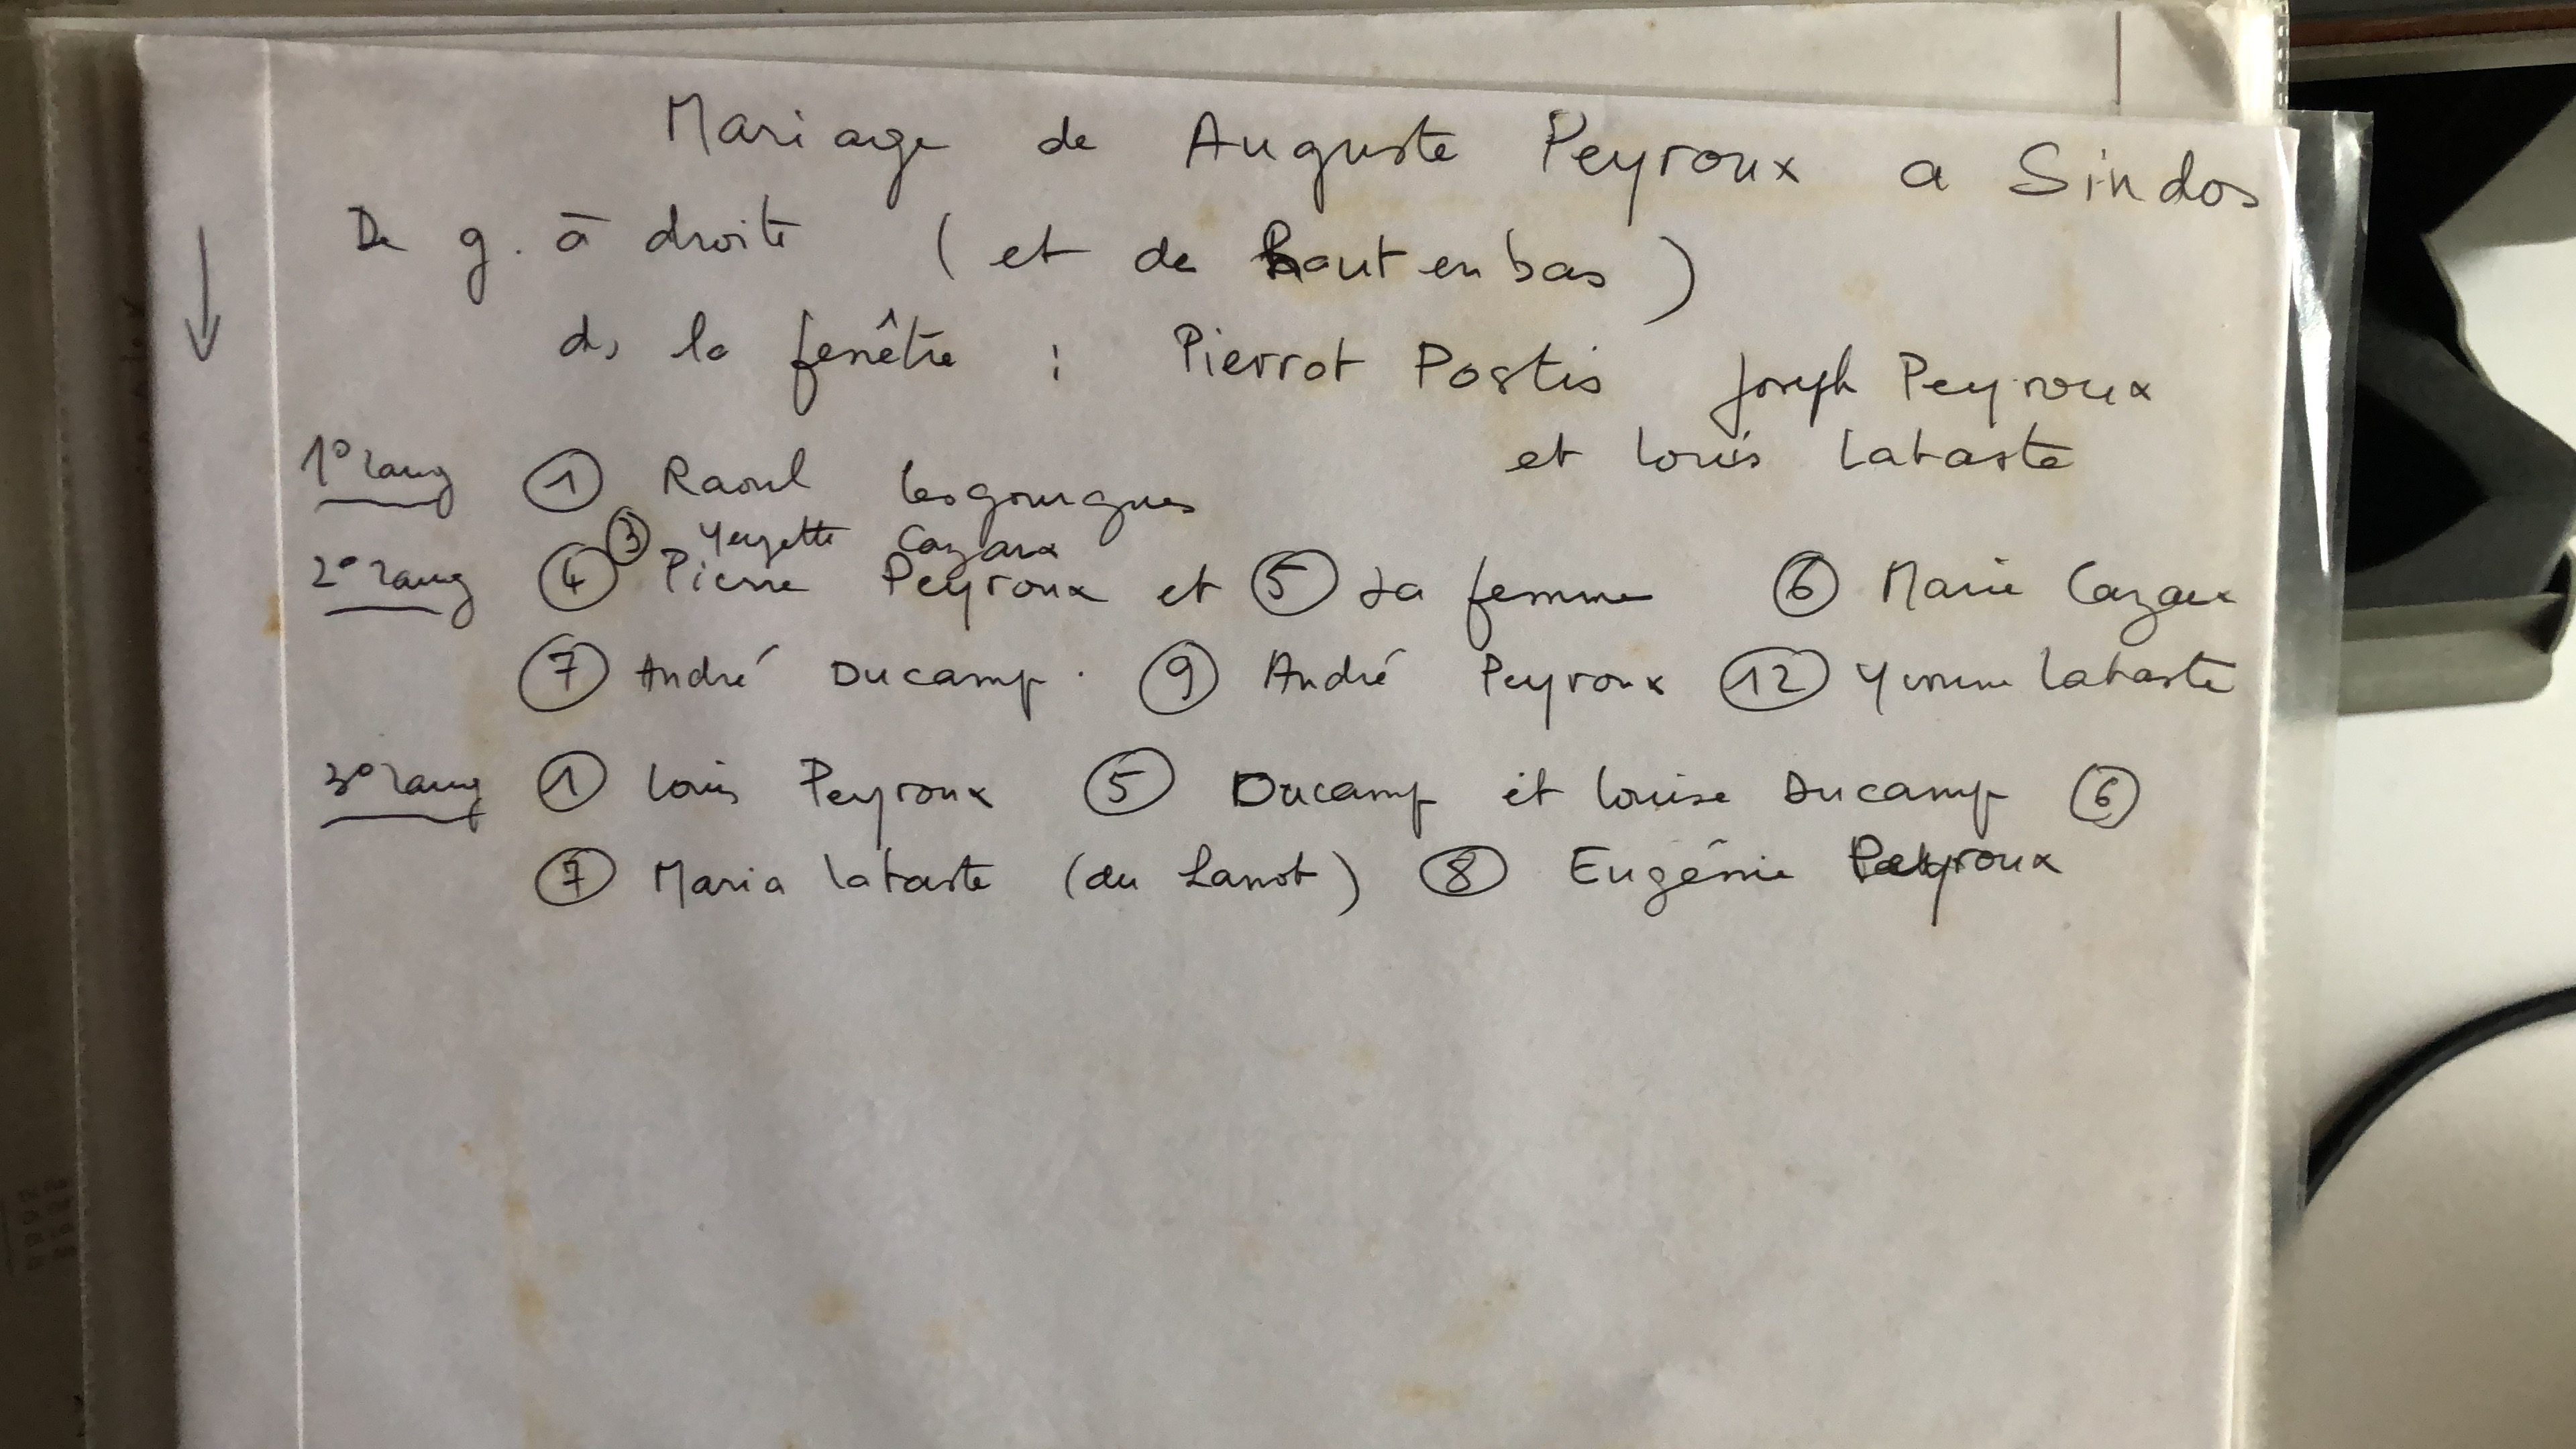 Mariage de Auguste Peyroux a Sindos
De g. à droite (et de haut en bas)
ds la fenêtre : Pierrot Postis Joseph Peyroux
et Louis Lataste
1° rang ① Raoul Lesgourgues
③ Cazaux
2° rang ④ Pierre Peyroux et ⑤ sa femme ⑥ Marie Cazaux
⑦ André Ducamp. ⑨ André Peyroux ⑫ Yvonne Lataste
3° rang ① Louis Peyroux ⑤ Ducamp et Louise Ducamp ⑥
⑦ Maria Lataste (du Lanot) ⑧ Eugénie Peyroux